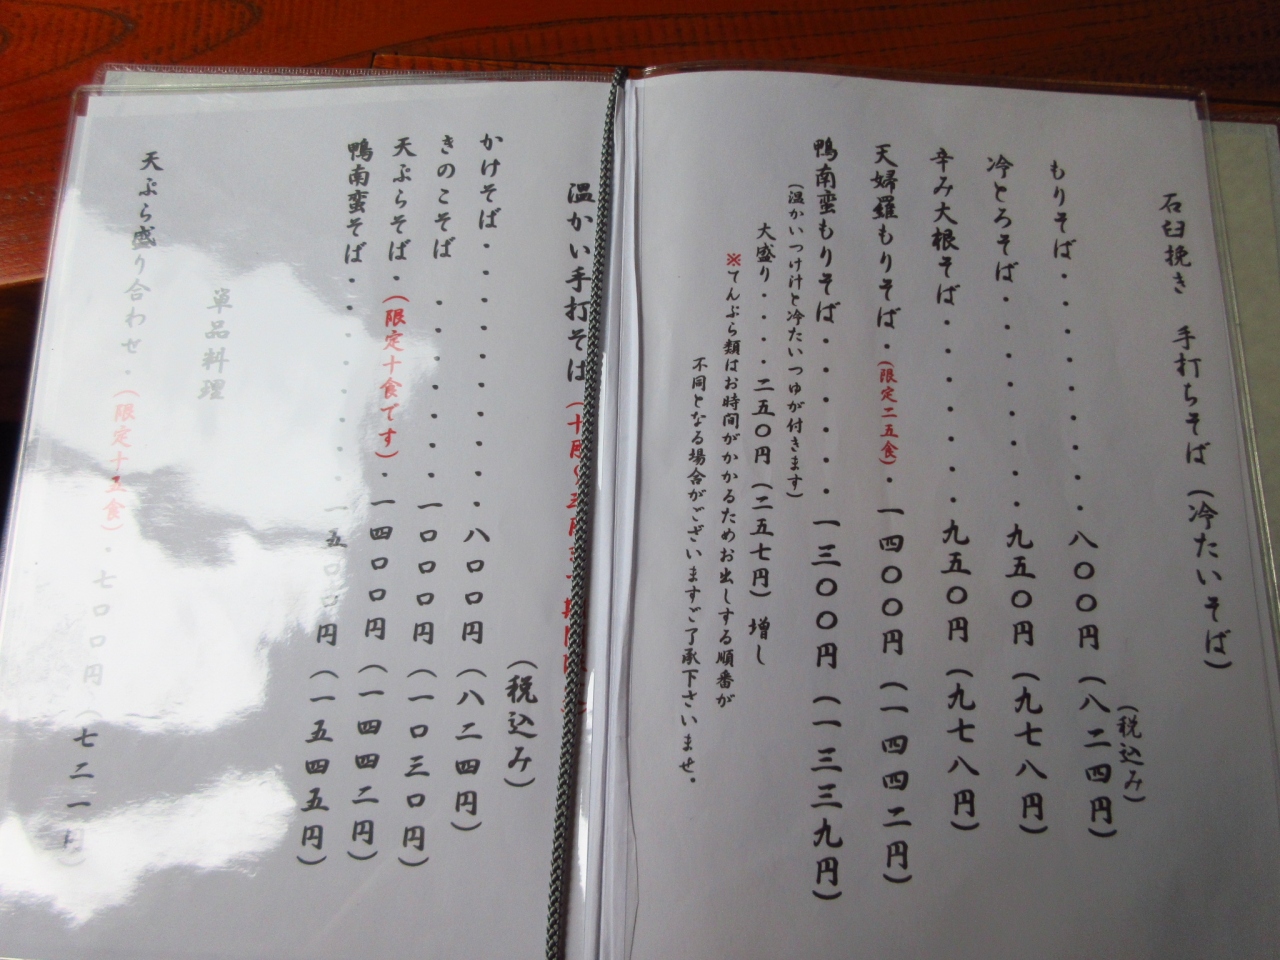 石臼挽き 手打ちそば（冷たいそば）
（税込み）
もりそば・・・・・・・・・八〇〇円（八二四円）
冷とろそば・・・・・・・・九五〇円（九七八円）
辛み大根そば・・・・・・・・九五〇円（九七八円）
天婦羅もりそば・（限定二五食）・一四〇〇円（一四四二円）
鴨南蛮もりそば・・・・・・一三〇〇円（一三三九円）
（温かいつけ汁と冷たいつゆが付きます）
大盛り・・・・二五〇円（二五七円）増し
※てんぷら類はお時間がかかるためお出しする順番が
不同となる場合がございますご了承下さいませ。
温かい手打そば
（税込み）
かけそば・・・・・・・・・・八〇〇円（八二四円）
きのこそば・・・・・・一〇〇〇円（一〇三〇円）
天ぷらそば・（限定十食です）・一四〇〇円（一四四二円）
鴨南蛮そば・・・・・・・・一五〇〇円（一五四五円）
単品料理
天ぷら盛り合わせ・（限定十五食）・七〇〇円（七二一円）